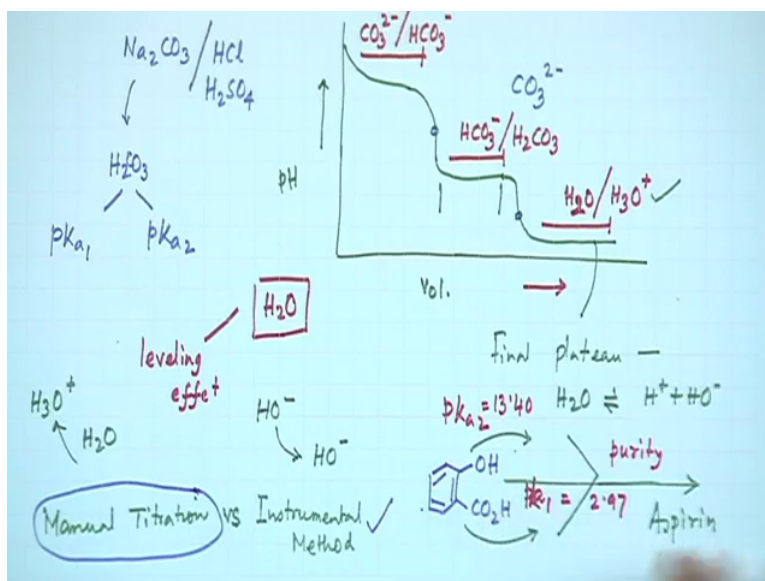 Na₂CO₃ / HCl
H₂SO₄
H₂CO₃
pKa₁ pKa₂
CO₃²⁻/HCO₃⁻
CO₃²⁻
HCO₃⁻/H₂CO₃
H₂O/H₃O⁺ ✓
pH
Vol. →
H₂O
leveling
effet
Final plateau —
H₂O ⇌ H⁺ + HO⁻
H₃O⁺
H₂O
HO⁻
HO⁻
pKa₂ = 13.40
OH
CO₂H
pKa₁ = 2.97
purity
Aspirin
Manual Titration vs Instrumental ✓
Method